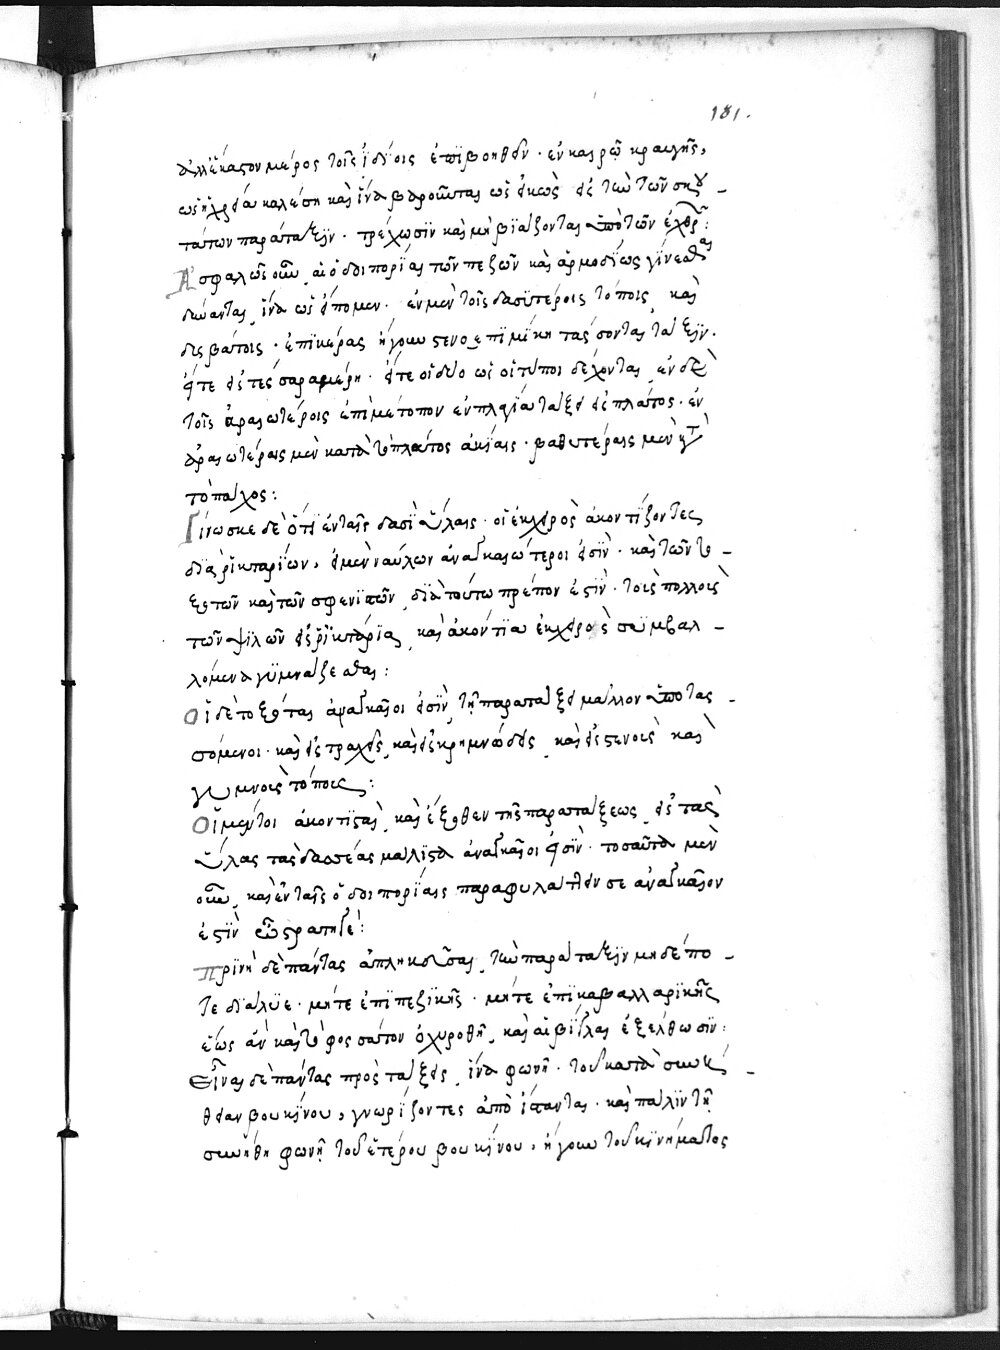 131.
ἀλλ' ἕκαστον μέρος τοῖς ἰδίοις ἐπιβοηθεῖν· ἐν καιρῷ κραυγῆς,
ὡς ἡ χρεία καλέσῃ καὶ ἵνα
τάττων παράταξιν· τρέχωσιν καὶ μὴ βιάζονται ὑπὸ τῶν ἐχθρῶν:
Ἀσφαλῶς οὖν αἱ ὁδοιπορίαι τῶν πεζῶν καὶ ἁρμοδίως γίνεσθαι
δύνανται, ἵνα ὡς εἴπομεν· ἐν μὲν τοῖς δασυτέροις τόποις, καὶ
δυσβάτοις· ἐπὶ κέρας ἤγουν στενοεπιμήκη τάσσονται τάξιν.
εἴτε εἰς τέσσαρα μέρη· εἴτε οἱ δύο ὡς οἱ τόποι δέχονται, ἐν δὲ
τοῖς ἀραιωτέροις ἐπὶ μέτωπον ἐν πλαγία τάξει εἰς πλάτος· ἐν
ἀραιωτέραις μὲν κατὰ τὸ πλάτος ἀκίαις· βαθυτέραις μὲν κατὰ
τὸ πάχος:
Γίνωσκε δὲ ὅτι ἐν ταῖς δασὶ ὕλαις· οἱ ἐκ χειρὸς ἀκοντίζοντες
διὰ ῥικταρίων, ἢ μεναύλων ἀναγκαιώτεροι εἰσὶν· καὶ τῶν το-
ξοτῶν καὶ τῶν σφενδονιστῶν, διὰ τούτω πρέπον ἐστὶν· τοὺς πολλοὺς
τῶν ψιλῶν εἰς ῥικτάρια, καὶ ἀκόντια ἐκ χειρὸς συμβαλ-
λόμενα γυμνάζεσθαι:
Οἱ δὲ τοξόται ἀναγκαῖοι εἰσὶν, τῇ παρατάξει μᾶλλον ὑποτασ-
σόμενοι· καὶ εἰς τραχεῖς, καὶ εἰς κρημνώδεις, καὶ εἰς στενοὺς καὶ
γυμνοὺς τόπους:
Οἱ μέντοι ἀκοντισταὶ, καὶ ἔξωθεν τῆς παρατάξεως, εἰς τὰς
ὕλας τὰς δασέας μάλιστα ἀναγκαῖοι εἰσὶν· τοσαῦτα μὲν
οὖν, καὶ ἐν ταῖς ὁδοιπορίαις παραφυλάττειν σε ἀναγκαῖον
ἐστὶν ὦ στρατηγέ:
Πρινὴ δὲ πάντας ἀπληκεῦσαι, τὴν παράταξιν μηδέπο-
τε διάλυε· μήτε ἐπὶ πεζικῆς· μήτε ἐπὶ καβαλλαρικῆς
ἕως ἂν καὶ τὸ φοσσάτον ὀχυρωθῇ, καὶ αἱ βίγλαι ἐξέλθωσιν:
Εἶναι δὲ πάντας πρὸς τάξεις, ἵνα φωνῇ· τοῦ κατὰ συνή-
θειαν βουκίνου, γνωρίζοντες ἀπὸ ἵσανται· καὶ πάλιν τῇ
συνήθη φωνῇ τοῦ ἑτέρου βουκίνου, ἤγουν τοῦ κινήματος